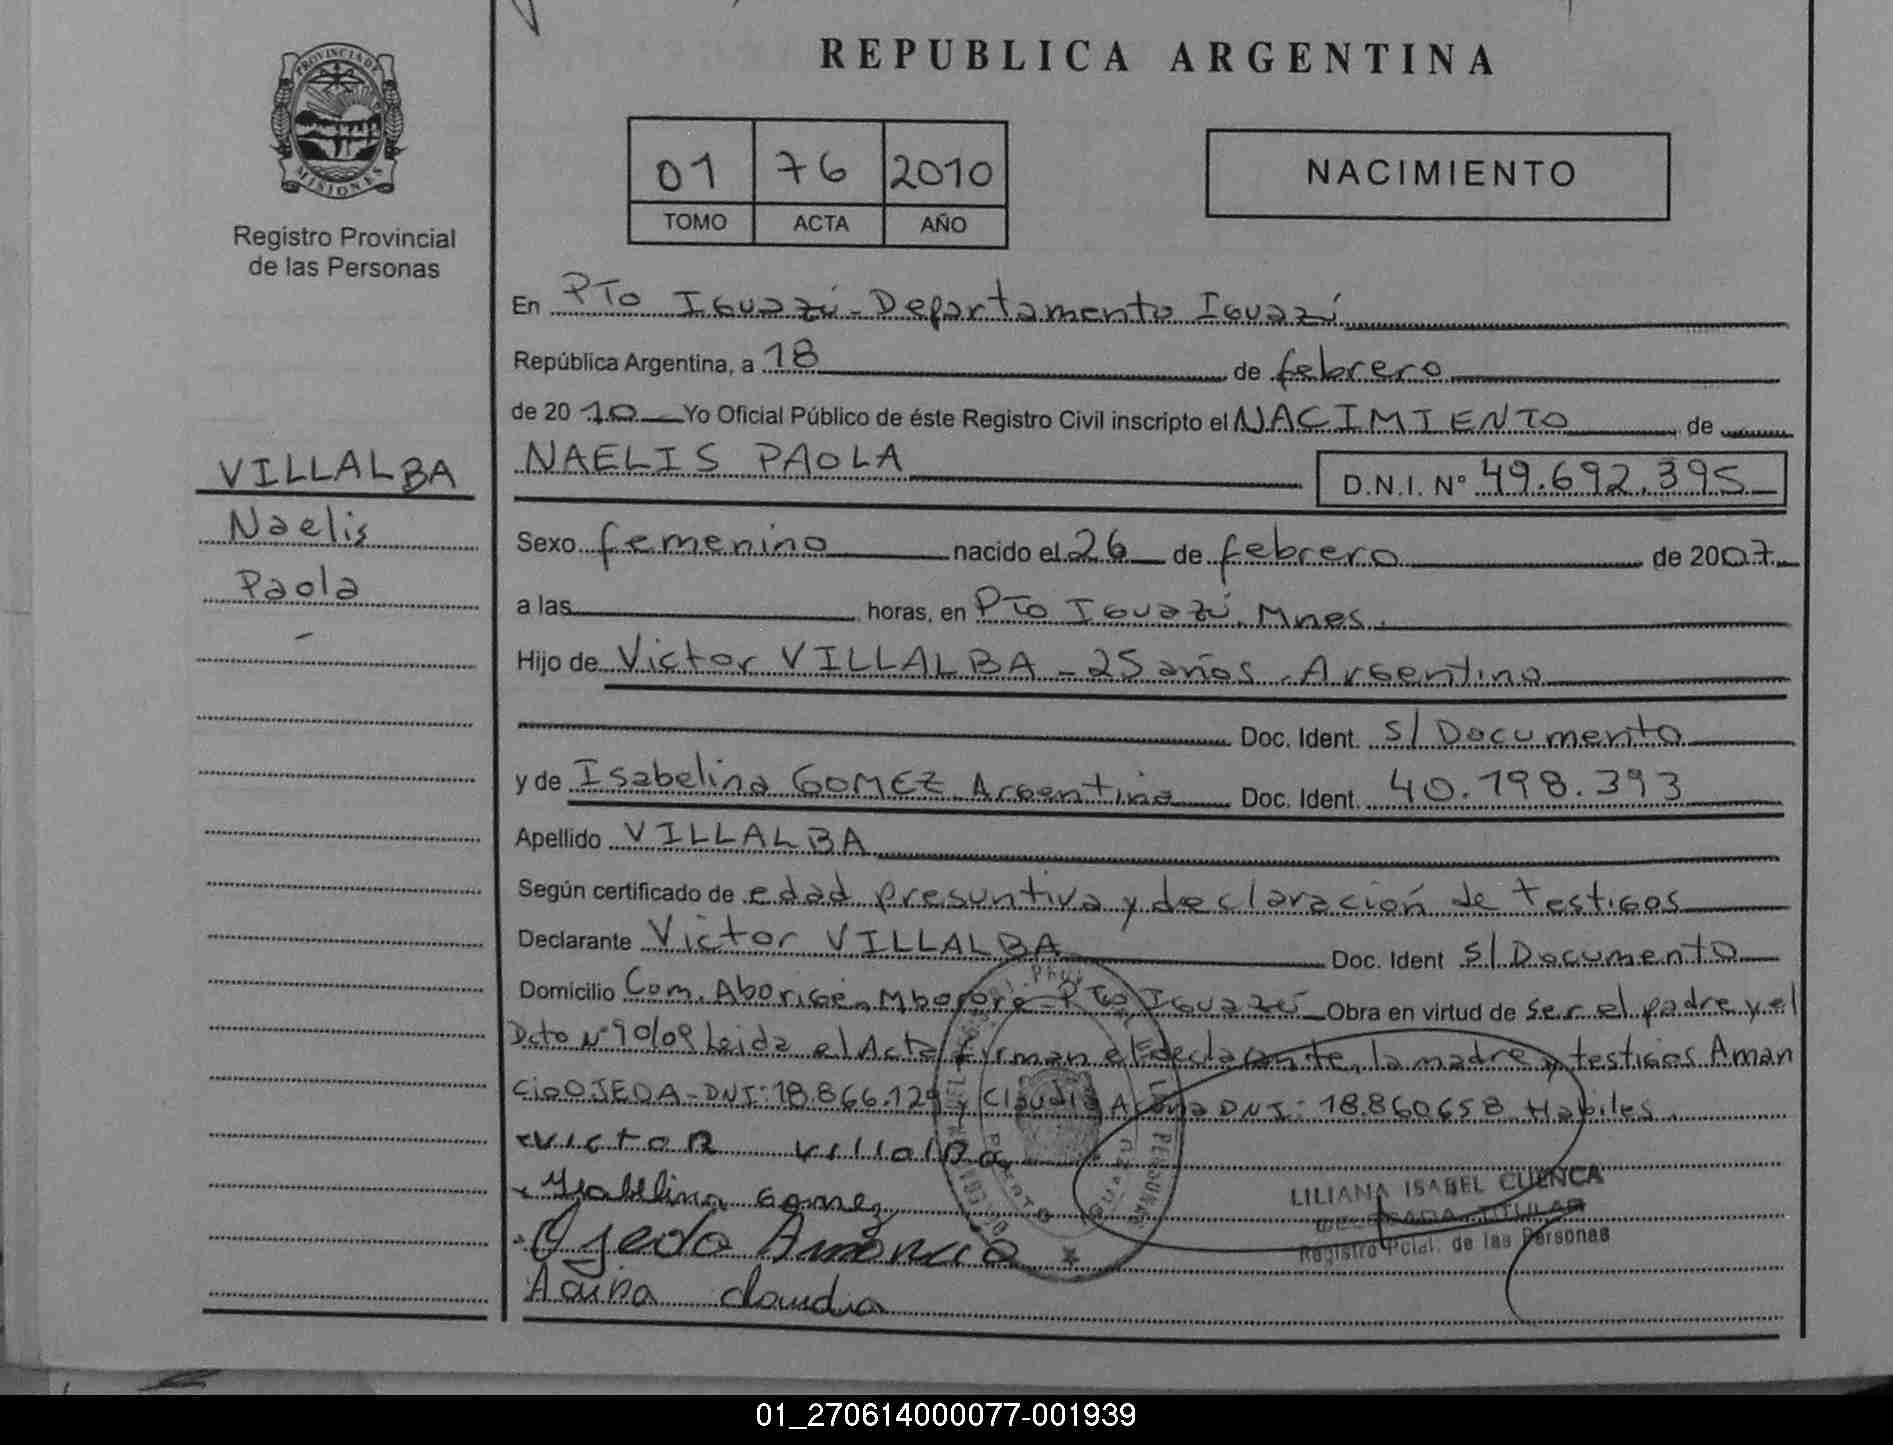 PROVINCIA DE
MISIONES
Registro Provincial
de las Personas
REPUBLICA ARGENTINA
01 76 2010
TOMO ACTA AÑO
NACIMIENTO
En PTo Iguazú - Departamento Iguazú
República Argentina, a 18 de febrero
de 2010 Yo Oficial Público de éste Registro Civil inscripto el NACIMIENTO de
NAELIS PAOLA D.N.I. N° 49.692.395
VILLALBA
Naelis
Paola
Sexo femenino nacido el 26 de febrero de 2007
a las horas, en PTo Iguazú. Mnes.
Hijo de Victor VILLALBA - 25 años - Argentino
Doc. Ident. s/ Documento
y de Isabelina GOMEZ. Argentina Doc. Ident. 40.198.393
Apellido VILLALBA
Según certificado de edad presuntiva y declaración de testigos
Declarante Victor VILLALBA Doc. Ident s/ Documento
Domicilio Com. Aborigen Mbororé - PTo Iguazú Obra en virtud de ser el padre y el
Dcto N° 90/09 Leida el Acta firman el declarante, la madre y testigos Aman
cio OJEDA - DNI: 18.866.129 y Claudia DNI: 18.860658 Habiles.
Victor Villalba
Isabelina Gomez
Ojeda Amancio
claudia
LILIANA ISABEL CUENCA
DELEGADA TITULAR
Registro Pcial. de las Personas
01_270614000077-001939